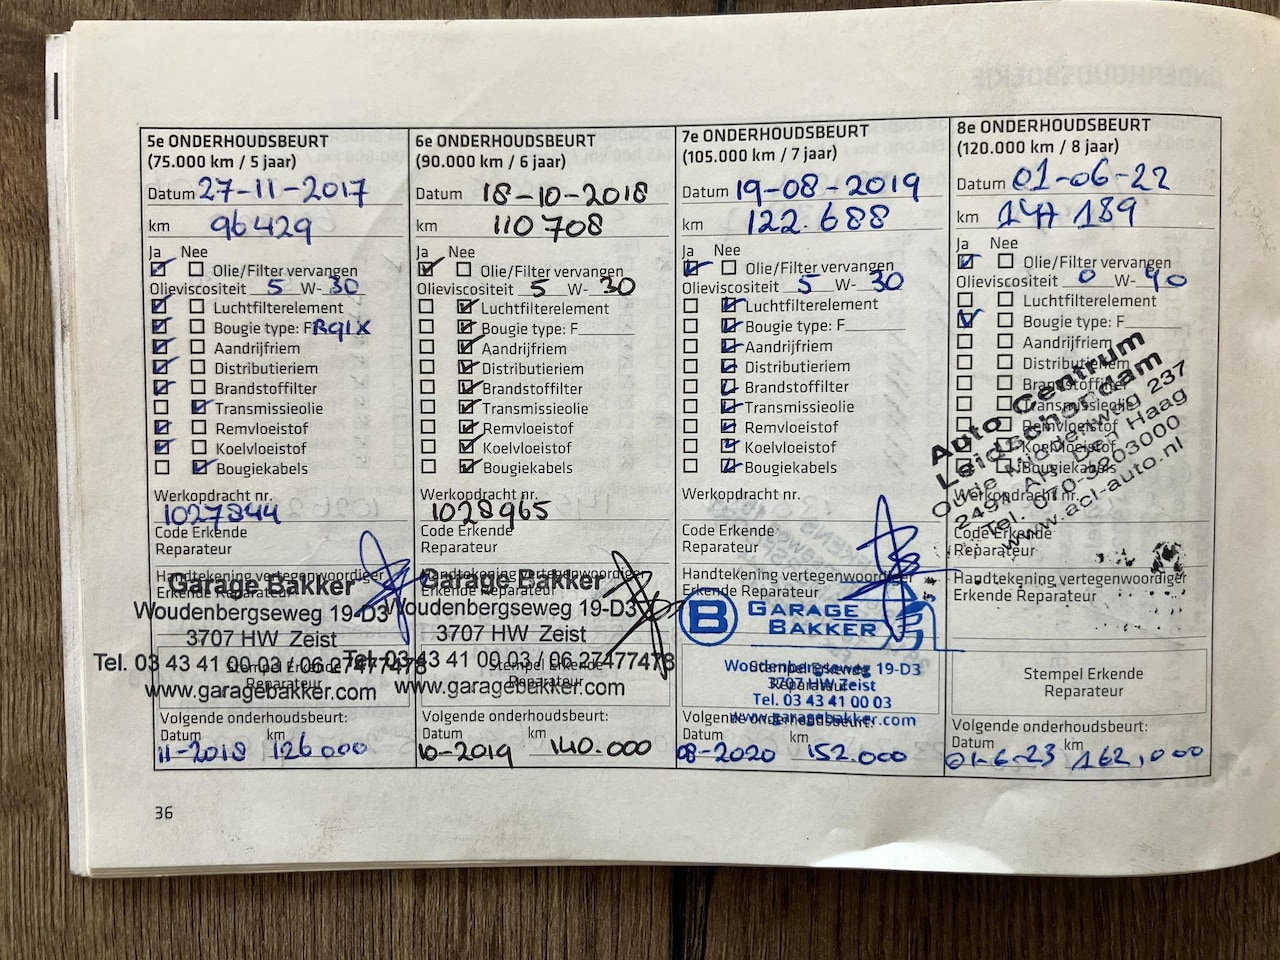 5e ONDERHOUDSBEURT
(75.000 km / 5 jaar)
Datum 27-11-2017
km 96429
Ja Nee
Olie/Filter vervangen
Olieviscositeit 5 W- 30
Luchtfilterelement
Bougie type: FR91X
Aandrijfriem
Distributieriem
Brandstoffilter
Transmissieolie
Remvloeistof
Koelvloeistof
Bougiekabels
Werkopdracht nr.
1027844
Code Erkende
Reparateur
Handtekening vertegenwoordiger
Erkende Reparateur
Garage Bakker
Woudenbergseweg 19-D3
3707 HW Zeist
Tel. 03 43 41 00 03 / 06 27477478
www.garagebakker.com
Stempel Erkende
Reparateur
Volgende onderhoudsbeurt:
Datum km
11-2018 126000
6e ONDERHOUDSBEURT
(90.000 km / 6 jaar)
Datum 18-10-2018
km 110708
Ja Nee
Olie/Filter vervangen
Olieviscositeit 5 W- 30
Luchtfilterelement
Bougie type: F
Aandrijfriem
Distributieriem
Brandstoffilter
Transmissieolie
Remvloeistof
Koelvloeistof
Bougiekabels
Werkopdracht nr.
1028965
Code Erkende
Reparateur
Handtekening vertegenwoordiger
Erkende Reparateur
Garage Bakker
Woudenbergseweg 19-D3
3707 HW Zeist
Tel. 03 43 41 00 03 / 06 27477478
www.garagebakker.com
Stempel Erkende
Reparateur
Volgende onderhoudsbeurt:
Datum km
10-2019 140.000
7e ONDERHOUDSBEURT
(105.000 km / 7 jaar)
Datum 19-08-2019
km 122.688
Ja Nee
Olie/Filter vervangen
Olieviscositeit 5 W- 30
Luchtfilterelement
Bougie type: F
Aandrijfriem
Distributieriem
Brandstoffilter
Transmissieolie
Remvloeistof
Koelvloeistof
Bougiekabels
Werkopdracht nr.
Code Erkende
Reparateur
Handtekening vertegenwoordiger
Erkende Reparateur
B GARAGE
BAKKER
Woudenbergseweg 19-D3
3707 HW Zeist
Tel. 03 43 41 00 03
www.garagebakker.com
Stempel Erkende
Reparateur
Volgende onderhoudsbeurt:
Datum km
08-2020 152.000
8e ONDERHOUDSBEURT
(120.000 km / 8 jaar)
Datum 01-06-22
km 147189
Ja Nee
Olie/Filter vervangen
Olieviscositeit 0 W- 40
Luchtfilterelement
Bougie type: F
Aandrijfriem
Distributieriem
Brandstoffilter
Transmissieolie
Remvloeistof
Koelvloeistof
Bougiekabels
Auto Centrum
Leidschendam
Oude Middenweg 237
2491 AH Den Haag
Tel. 070-3203000
www.acl-auto.nl
Werkopdracht nr.
Code Erkende
Reparateur
Handtekening vertegenwoordiger
Erkende Reparateur
Stempel Erkende
Reparateur
Volgende onderhoudsbeurt:
Datum km
01-6-23 162,000
36